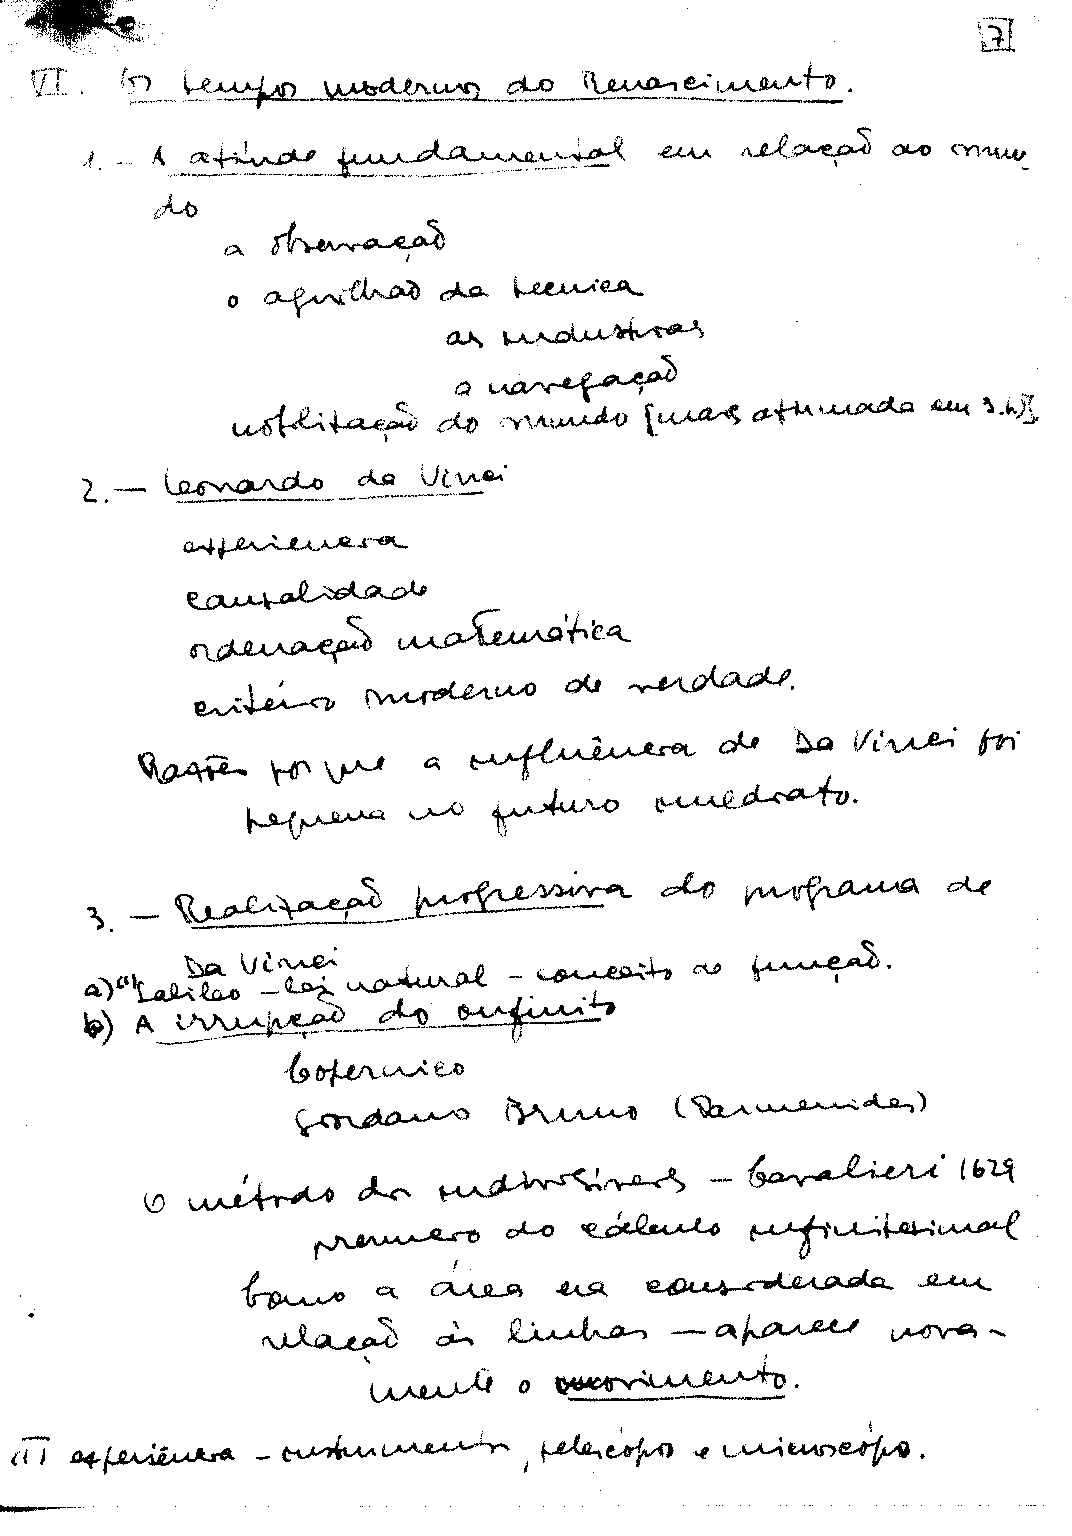 7
VI. Os tempos modernos do Renascimento.
1. - A atitude fundamental em relação ao mun-
do
a observação
o aguilhão da técnica
as industrias
a navegação
nobilitação do mundo [mais afirmada em 3.b)]
2. - Leonardo da Vinci
experiencia
causalidade
ordenação matemática
critério moderno de verdade.
Razões por que a influência de Da Vinci foi
pequena no futuro imediato.
3. - Realização progressiva do programa de
Da Vinci
a) Galileo - lei natural - conceito de função.
b) A irrupção do infinito
Copernico
Giordano Bruno (Parmenides)
O método dos indivisíveis - Cavalieri 1629
primeiro do cálculo infinitesimal
Como a área era considerada em
relação às linhas - aparece nova-
mente o movimento.
III experiência - instrumentos, telescópio e microscópio.